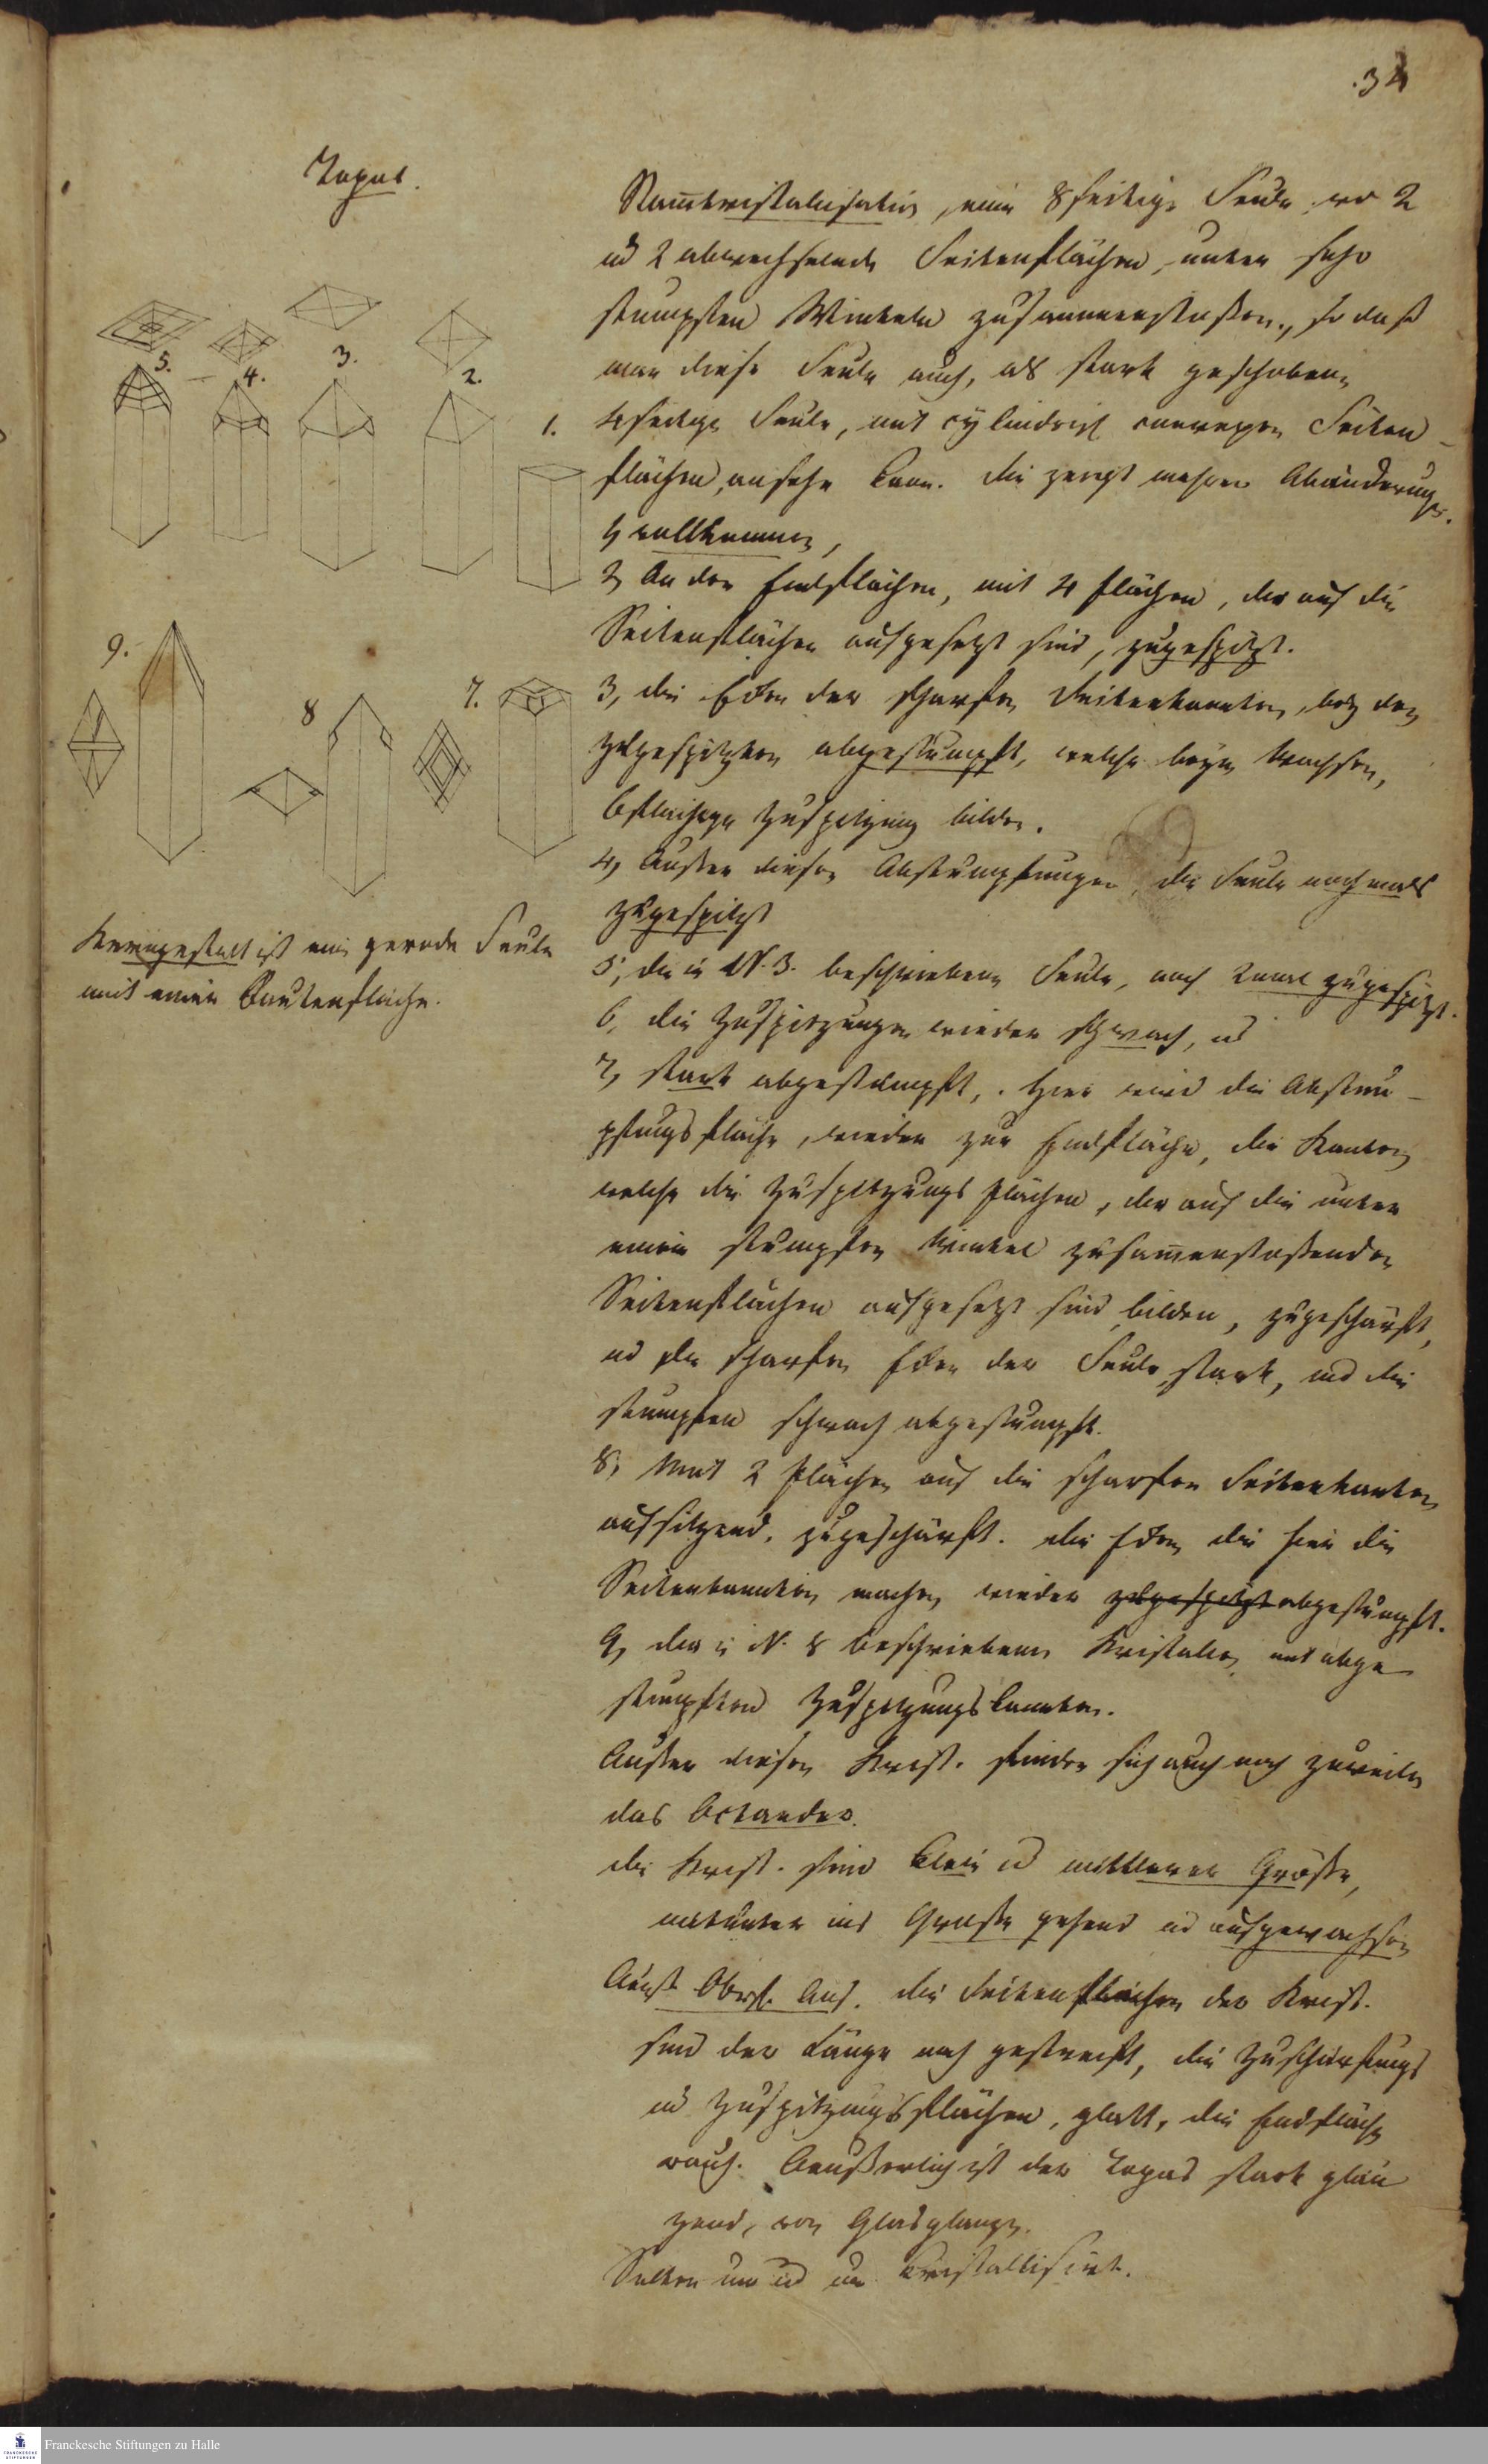 34
Topas.
Stam̅kristalisation, eine 8seitige Seule wo 2
ud 2 abwechselnde Seitenflächen, unter sehr
stumpfen Winkeln zusammenstoßen, so daß
man diese Seule auch, als stark geschobene
4seitige Seule, mit cylindrisch convexen Seiten-
flächen, ansehn kann. Sie zeigt mehrere Abänderungen.
1, vollkommen,
2, An den Endflächen, mit 4 Flächen, die auf die
Seitenflächen aufgesetzt sind, zugespitzt.
3, die Ecken der scharfen Seitenkanten, bey der
zugespitzten abgestumpft, welche beym Wachsen,
6flächige Zuspitzung bilden.
4, Außer diesen Abstumpfungen die Seule nochmals
zugespitzt
5, die in N. 3. beschriebene Seule, noch 2 mal zugespitzt.
6, die Zuspitzungen wieder schwach, ud
7, stark abgestumpft, . hier wird die Abstum-
pfungsfläche, wieder zur Endfläche, die Kanten
welche die Zuspitzungs flächen, die auf die unter
einem stumpfen Winkel zusam̅enstoßenden
Seitenflächen aufgesetzt sind bilden, zugeschärft,
ud die scharfen Ecken der Seule stark, und die
stumpfen schwach abgestumpft.
8, Mit 2 Flächen auf die scharfen Seitenkanten
aufsitzend, zugeschärft. die Ecken die hier die
Seitenkanten machen wieder zugespitzt abgestumpft.
9, die in N. 8 beschriebene Kristallen mit abge
stumpften Zuspitzungskannten.
Außer diesen Krist. finden sich auch noch zuweilen
das Octaeder.
die Krist. sind klein ud mittlerer Größe,
mitunter ins Große gehend ud aufgewachsen
Aeuß. Obrfl. Ans. die Seitenflächen der Krist.
sind der Länge nach gestreift, die Zuschärfungs
ud Zuspitzungsflächen, glatt, die Endfläche
rauh. Aeußerlich ist der Topas stark glän
zend, von Glasglanze.
Selten kristallisirt.
5.
4.
3.
2.
1.
9.
8
7.
Kerngestalt ist eine gerade Seule
mit einer Rautenfläche.
Franckesche Stiftungen zu Halle